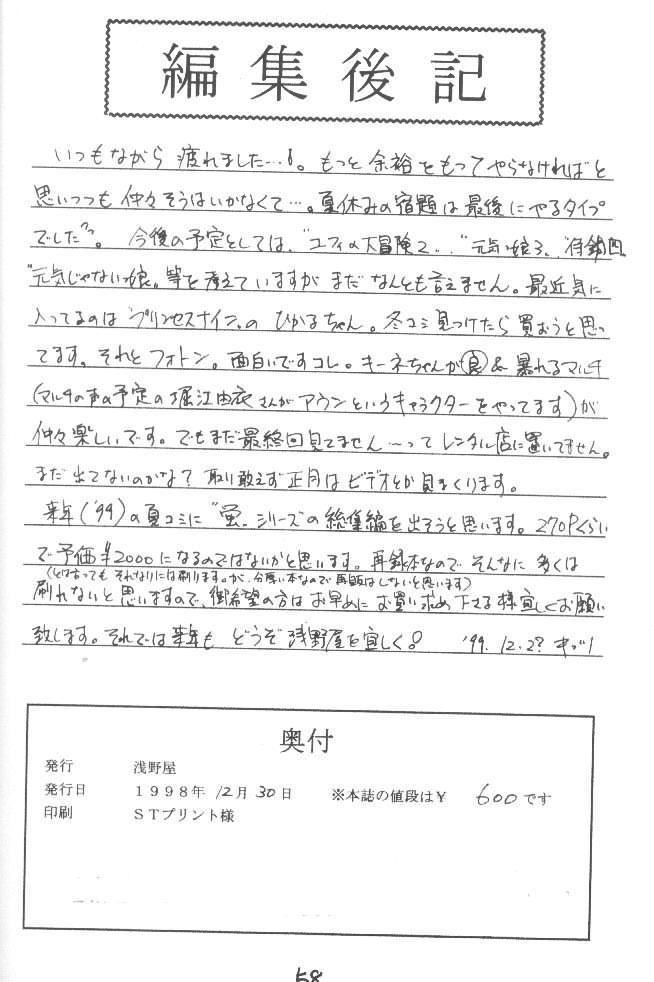 編集後記
いつもながら疲れました…。もっと余裕をもってやらなければと
思いつつも仲々そうはいかなくて…。夏休みの宿題は最後にやるタイプ
でした。今後の予定としては、"ユフィの大冒険2" "元気っ娘3"
"元気じゃないっ娘"等を考えていますがまだなんとも言えません。最近気に
入ってるのは"プリンセスナイン"のひかるちゃん。冬コミ見つけたら買おうと思っ
てます。それとフォトン。面白いですコレ。キーネちゃんが㊛&暴れるマルチ
(マルチの声の予定の堀江由衣さんがアウンというキャラクターをやってます)が
仲々楽しいです。でもまだ最終回見てません〜ってレンタル店に置いてません。
まだ出てないのかな?取り敢えず正月はビデオとか見まくります。
来年('99)の夏コミに"蛍"シリーズの総集編を出そうと思います。270Pくらい
で予価¥2000になるのではないかと思います。再録本なのでそんなに多くは
(とは言ってもそれなりには刷ります。が、分厚い本なので再販はしないと思います)
刷れないと思いますので、御希望の方はお早めにお買い求め下さる様宜しくお願い
致します。それでは来年もどうぞ浅野屋を宜しく! '99.12.2?
奥付
発行 浅野屋
発行日 1998年12月30日 ※本誌の値段は¥600です
印刷 STプリント様
58